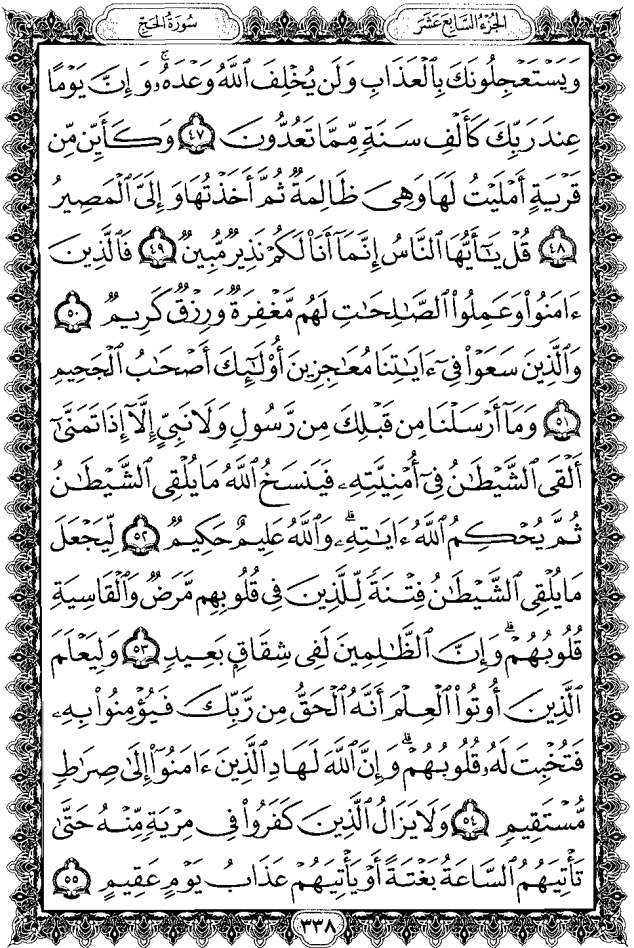 الجزء السابع عشر
سورة الحج
وَيَسْتَعْجِلُونَكَ بِالْعَذَابِ وَلَن يُخْلِفَ اللَّهُ وَعْدَهُۥ ۚ وَإِنَّ يَوْمًا
عِندَ رَبِّكَ كَأَلْفِ سَنَةٍ مِّمَّا تَعُدُّونَ ٤٧ وَكَأَيِّن مِّن
قَرْيَةٍ أَمْلَيْتُ لَهَا وَهِيَ ظَالِمَةٌ ثُمَّ أَخَذْتُهَا وَإِلَيَّ الْمَصِيرُ
٤٨ قُلْ يَٰٓأَيُّهَا النَّاسُ إِنَّمَآ أَنَا۠ لَكُمْ نَذِيرٌ مُّبِينٌ ٤٩ فَالَّذِينَ
ءَامَنُوا۟ وَعَمِلُوا۟ الصَّٰلِحَٰتِ لَهُم مَّغْفِرَةٌ وَرِزْقٌ كَرِيمٌ ٥٠
وَالَّذِينَ سَعَوْا۟ فِىٓ ءَايَٰتِنَا مُعَٰجِزِينَ أُو۟لَٰٓئِكَ أَصْحَٰبُ الْجَحِيمِ
٥١ وَمَآ أَرْسَلْنَا مِن قَبْلِكَ مِن رَّسُولٍ وَلَا نَبِىٍّ إِلَّآ إِذَا تَمَنَّىٰٓ
أَلْقَى الشَّيْطَٰنُ فِىٓ أُمْنِيَّتِهِۦ فَيَنسَخُ اللَّهُ مَا يُلْقِى الشَّيْطَٰنُ
ثُمَّ يُحْكِمُ اللَّهُ ءَايَٰتِهِۦ ۗ وَاللَّهُ عَلِيمٌ حَكِيمٌ ٥٢ لِّيَجْعَلَ
مَا يُلْقِى الشَّيْطَٰنُ فِتْنَةً لِّلَّذِينَ فِى قُلُوبِهِم مَّرَضٌ وَالْقَاسِيَةِ
قُلُوبُهُمْ ۗ وَإِنَّ الظَّٰلِمِينَ لَفِى شِقَاقٍۭ بَعِيدٍ ٥٣ وَلِيَعْلَمَ
الَّذِينَ أُوتُوا۟ الْعِلْمَ أَنَّهُ الْحَقُّ مِن رَّبِّكَ فَيُؤْمِنُوا۟ بِهِۦ
فَتُخْبِتَ لَهُۥ قُلُوبُهُمْ ۗ وَإِنَّ اللَّهَ لَهَادِ الَّذِينَ ءَامَنُوٓا۟ إِلَىٰ صِرَٰطٍ
مُّسْتَقِيمٍ ٥٤ وَلَا يَزَالُ الَّذِينَ كَفَرُوا۟ فِى مِرْيَةٍ مِّنْهُ حَتَّىٰ
تَأْتِيَهُمُ السَّاعَةُ بَغْتَةً أَوْ يَأْتِيَهُمْ عَذَابُ يَوْمٍ عَقِيمٍ ٥٥
٣٣٨